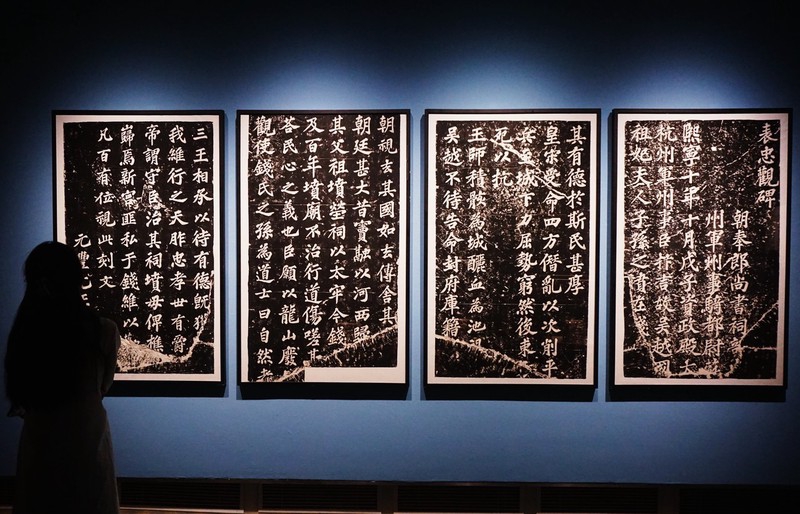 表忠觀碑
朝奉郎尚書祠部
州軍州事騎都尉
熙寧十年十月戊子資政殿大
杭州軍州事臣抃言故吳越國
祖妃夫人子孫之墳在錢
其有德於斯民甚厚
皇宋受命四方僭亂以次削平
兵至城下力屈勢窮然後束
死以抗
王師積骸為城釃血為池竭
吳越不待告命封府庫籍
朝視去其國如去傳舍其
朝廷甚大昔竇融以河西歸
其父祖墳塋祠以太牢今錢
及百年墳廟不治行道傷嗟甚
荅民心之義也臣願以龍山廢
觀使錢氏之孫為道士曰自然者
三王相承以待有德既獲
我維行之天胙忠孝世有爵
帝謂守臣治其祠墳毋俾樵
巋焉新宮匪私于錢維以
凡百有位視此刻文
元豐元年